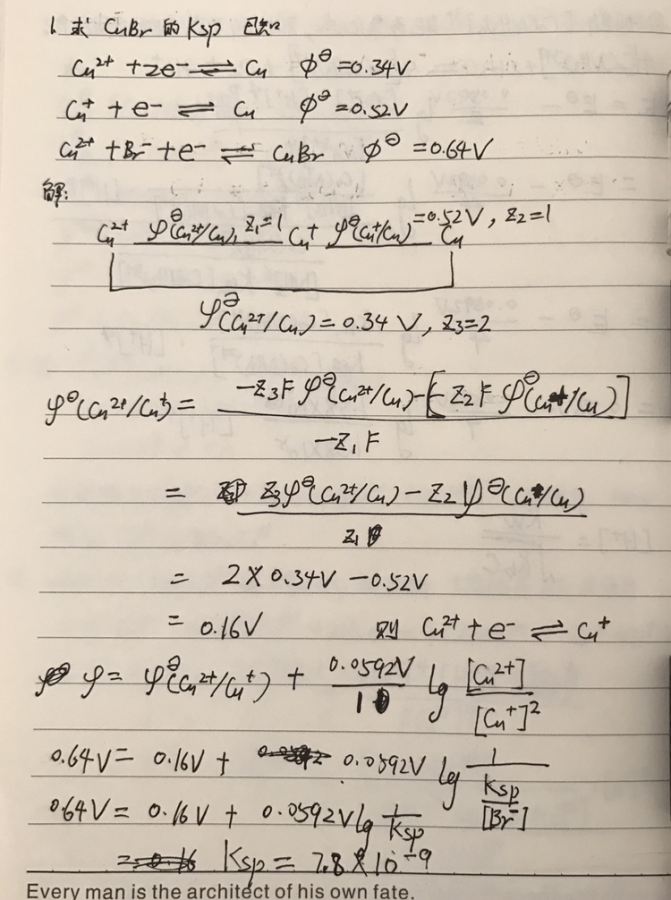 1. 求 CuBr 的 Ksp 已知
Cu²⁺ + 2e⁻ ⇌ Cu φ^⊖ = 0.34V
Cu⁺ + e⁻ ⇌ Cu φ^⊖ = 0.52V
Cu²⁺ + Br⁻ + e⁻ ⇌ CuBr φ^⊖ = 0.64V
解:
Cu²⁺ φ^⊖(Cu²⁺/Cu), z₁=1 Cu⁺ φ^⊖(Cu⁺/Cu) = 0.52V, z₂=1 Cu
φ^⊖(Cu²⁺/Cu) = 0.34 V, z₃=2
φ^⊖(Cu²⁺/Cu⁺) = (-z₃F φ^⊖(Cu²⁺/Cu) - [-z₂F φ^⊖(Cu⁺/Cu)]) / (-z₁F)
= (z₃φ^⊖(Cu²⁺/Cu) - z₂φ^⊖(Cu⁺/Cu)) / z₁
= 2×0.34V - 0.52V
= 0.16V 则 Cu²⁺ + e⁻ ⇌ Cu⁺
φ = φ^⊖(Cu²⁺/Cu⁺) + (0.0592V / 1) lg ([Cu²⁺] / [Cu⁺]²)
0.64V = 0.16V + 0.0592V lg (1 / (Ksp / [Br⁻]))
0.64V = 0.16V + 0.0592V lg (1 / Ksp)
Ksp = 7.8×10⁻⁹
Every man is the architect of his own fate.